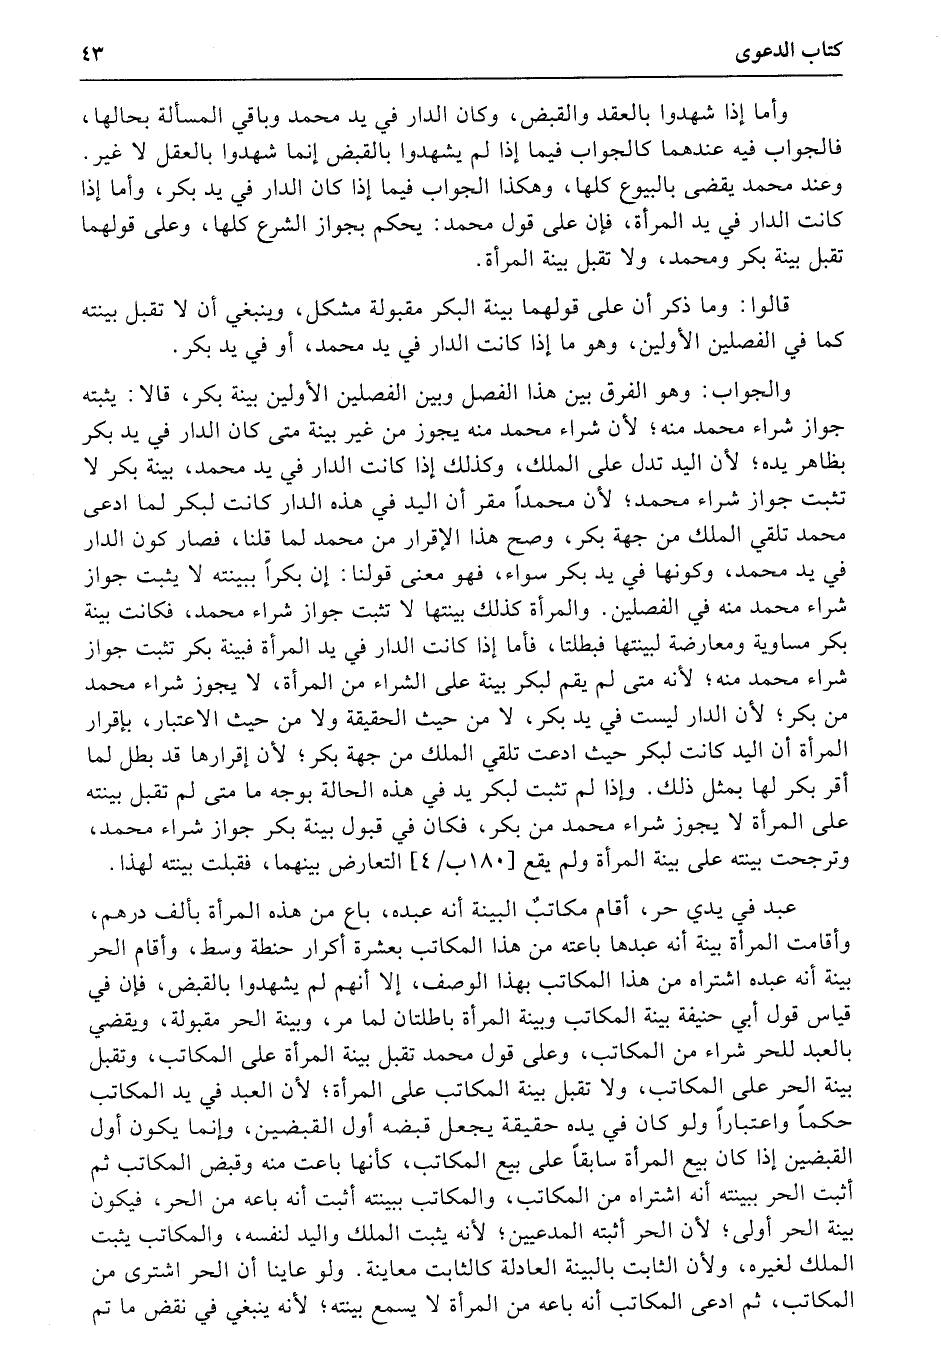 كتاب الدعوى ٤٣
وأما إذا شهدوا بالعقد والقبض، وكان الدار في يد محمد وباقي المسألة بحالها،
فالجواب فيه عندهما كالجواب فيما إذا لم يشهدوا بالقبض إنما شهدوا بالعقل لا غير.
وعند محمد يقضى بالبيوع كلها، وهكذا الجواب فيما إذا كان الدار في يد بكر، وأما إذا
كانت الدار في يد المرأة، فإن على قول محمد: يحكم بجواز الشرع كلها، وعلى قولهما
تقبل بينة بكر ومحمد، ولا تقبل بينة المرأة.
قالوا: وما ذكر أن على قولهما بينة البكر مقبولة مشكل، وينبغي أن لا تقبل بينته
كما في الفصلين الأولين، وهو ما إذا كانت الدار في يد محمد، أو في يد بكر.
والجواب: وهو الفرق بين هذا الفصل وبين الفصلين الأولين بينة بكر، قالا: يثبته
جواز شراء محمد منه؛ لأن شراء محمد منه يجوز من غير بينة متى كان الدار في يد بكر
بظاهر يده؛ لأن اليد تدل على الملك، وكذلك إذا كانت الدار في يد محمد، بينة بكر لا
تثبت جواز شراء محمد؛ لأن محمداً مقر أن اليد في هذه الدار كانت لبكر لما ادعى
محمد تلقي الملك من جهة بكر، وصح هذا الإقرار من محمد لما قلنا، فصار كون الدار
في يد محمد، وكونها في يد بكر سواء، فهو معنى قولنا: إن بكراً ببينته لا يثبت جواز
شراء محمد منه في الفصلين. والمرأة كذلك بينتها لا تثبت جواز شراء محمد، فكانت بينة
بكر مساوية ومعارضة لبينتها فبطلتا، فأما إذا كانت الدار في يد المرأة فبينة بكر تثبت جواز
شراء محمد منه؛ لأنه متى لم يقم لبكر بينة على الشراء من المرأة، لا يجوز شراء محمد
من بكر؛ لأن الدار ليست في يد بكر، لا من حيث الحقيقة ولا من حيث الاعتبار، بإقرار
المرأة أن اليد كانت لبكر حيث ادعت تلقي الملك من جهة بكر؛ لأن إقرارها قد بطل لما
أقر بكر لها بمثل ذلك. وإذا لم تثبت لبكر يد في هذه الحالة بوجه ما متى لم تقبل بينته
على المرأة لا يجوز شراء محمد من بكر، فكان في قبول بينة بكر جواز شراء محمد،
وترجحت بينته على بينة المرأة ولم يقع [١٨٠ب/٤] التعارض بينهما، فقبلت بينته لهذا.
عبد في يدي حر، أقام مكاتبٌ البينة أنه عبده، باع من هذه المرأة بألف درهم،
وأقامت المرأة بينة أنه عبدها باعته من هذا المكاتب بعشرة أكرار حنطة وسط، وأقام الحر
بينة أنه عبده اشتراه من هذا المكاتب بهذا الوصف، إلا أنهم لم يشهدوا بالقبض، فإن في
قياس قول أبي حنيفة بينة المكاتب وبينة المرأة باطلتان لما مر، وبينة الحر مقبولة، ويقضي
بالعبد للحر شراء من المكاتب، وعلى قول محمد تقبل بينة المرأة على المكاتب، وتقبل
بينة الحر على المكاتب، ولا تقبل بينة المكاتب على المرأة؛ لأن العبد في يد المكاتب
حكماً واعتباراً ولو كان في يده حقيقة يجعل قبضه أول القبضين، وإنما يكون أول
القبضين إذا كان بيع المرأة سابقاً على بيع المكاتب، كأنها باعت منه وقبض المكاتب ثم
أثبت الحر ببينته أنه اشتراه من المكاتب، والمكاتب ببينته أثبت أنه باعه من الحر، فيكون
بينة الحر أولى؛ لأن الحر أثبته المدعيين؛ لأنه يثبت الملك واليد لنفسه، والمكاتب يثبت
الملك لغيره، ولأن الثابت بالبينة العادلة كالثابت معاينة. ولو عاينا أن الحر اشترى من
المكاتب، ثم ادعى المكاتب أنه باعه من المرأة لا يسمع بينته؛ لأنه ينبغي في نقض ما تم